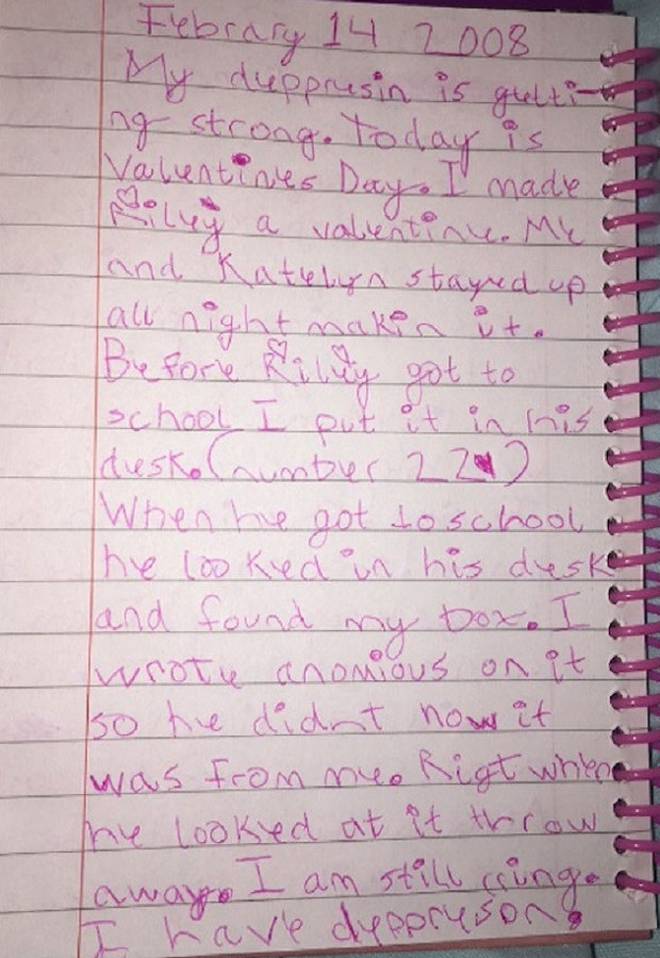 Febrary 14 2008
My deppresin is getti-
ng strong. Today is
Valentines Day. I made
Riley a valentine. Me
and Katelyn stayed up
all night makin it.
Before Riley got to
school I put it in his
desk. (number 221)
When he got to school
he looked in his desk
and found my box. I
wrote anomious on it
so he didnt now it
was from me. Rigt when
he looked at it throw
away. I am still cring.
I have deppreson.